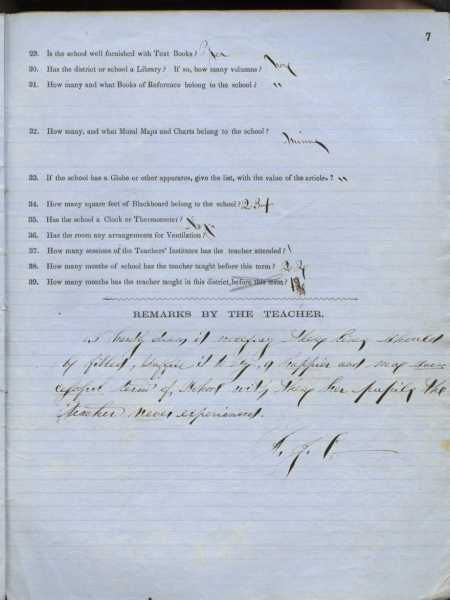 7
29. Is the school well furnished with Text Books?
30. Has the district or school a Library? If so, how many volumes? None
31. How many and what Books of Reference belong to the school? "
32. How many, and what Mural Maps and Charts belong to the school?
33. If the school has a Globe or other apparatus, give the list, with the value of the articles? "
34. How many square feet of Blackboard belong to the school? 234
35. Has the school a Clock or Thermometer?
36. Has the room any arrangements for Ventilation?
37. How many sessions of the Teachers' Institutes has the teacher attended?
38. How many months of school has the teacher taught before this term?
39. How many months has the teacher taught in this district, before this term?
REMARKS BY THE TEACHER.
I hardly deem it necessary these lines should
be filled, suffice it to say, a happier and more suc-
cessful term of School with these her pupils the
teacher never experienced.